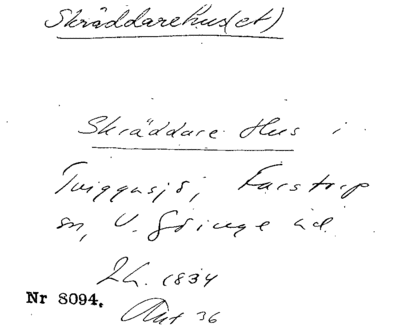 Skräddarehus(et)
Skräddare Hus i
Tviggasjö, Farstorp
sn, V. Göinge hd.
Lh. 1834
Nr 8094.
36